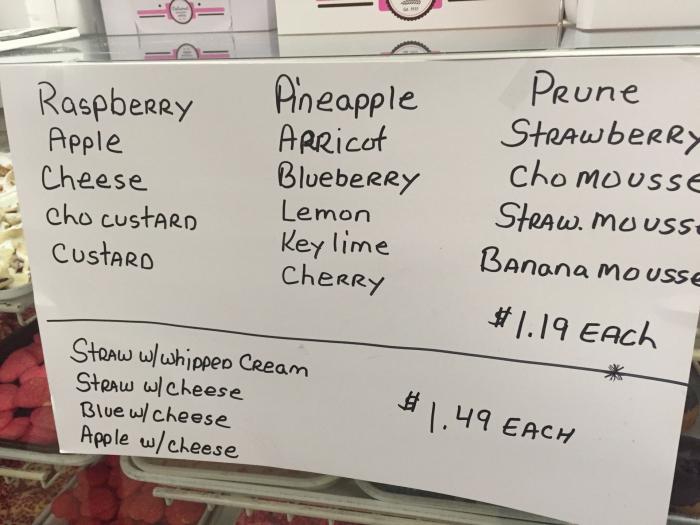 Raspberry
Apple
Cheese
Cho custard
Custard
Pineapple
Arricot
Blueberry
Lemon
Key lime
Cherry
Prune
Strawberry
Cho mousse
Straw. mousse
Banana mousse
$1.19 Each
Straw w/whipped Cream
Straw w/cheese
Blue w/cheese
Apple w/cheese
$1.49 EACH